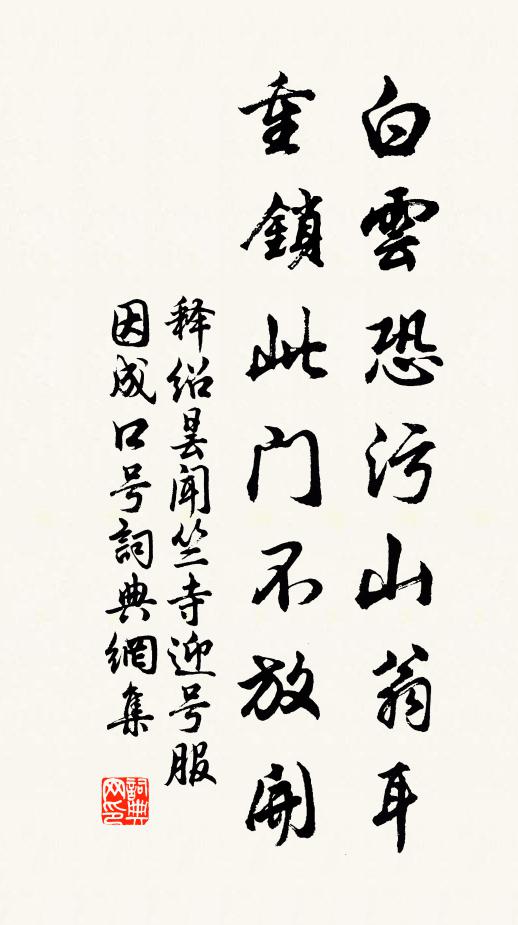 白雲恐污山翁耳
重鎖此门不放開
释绍昙闻竺寺迎号服
因成口号詞典網集
詞典网印